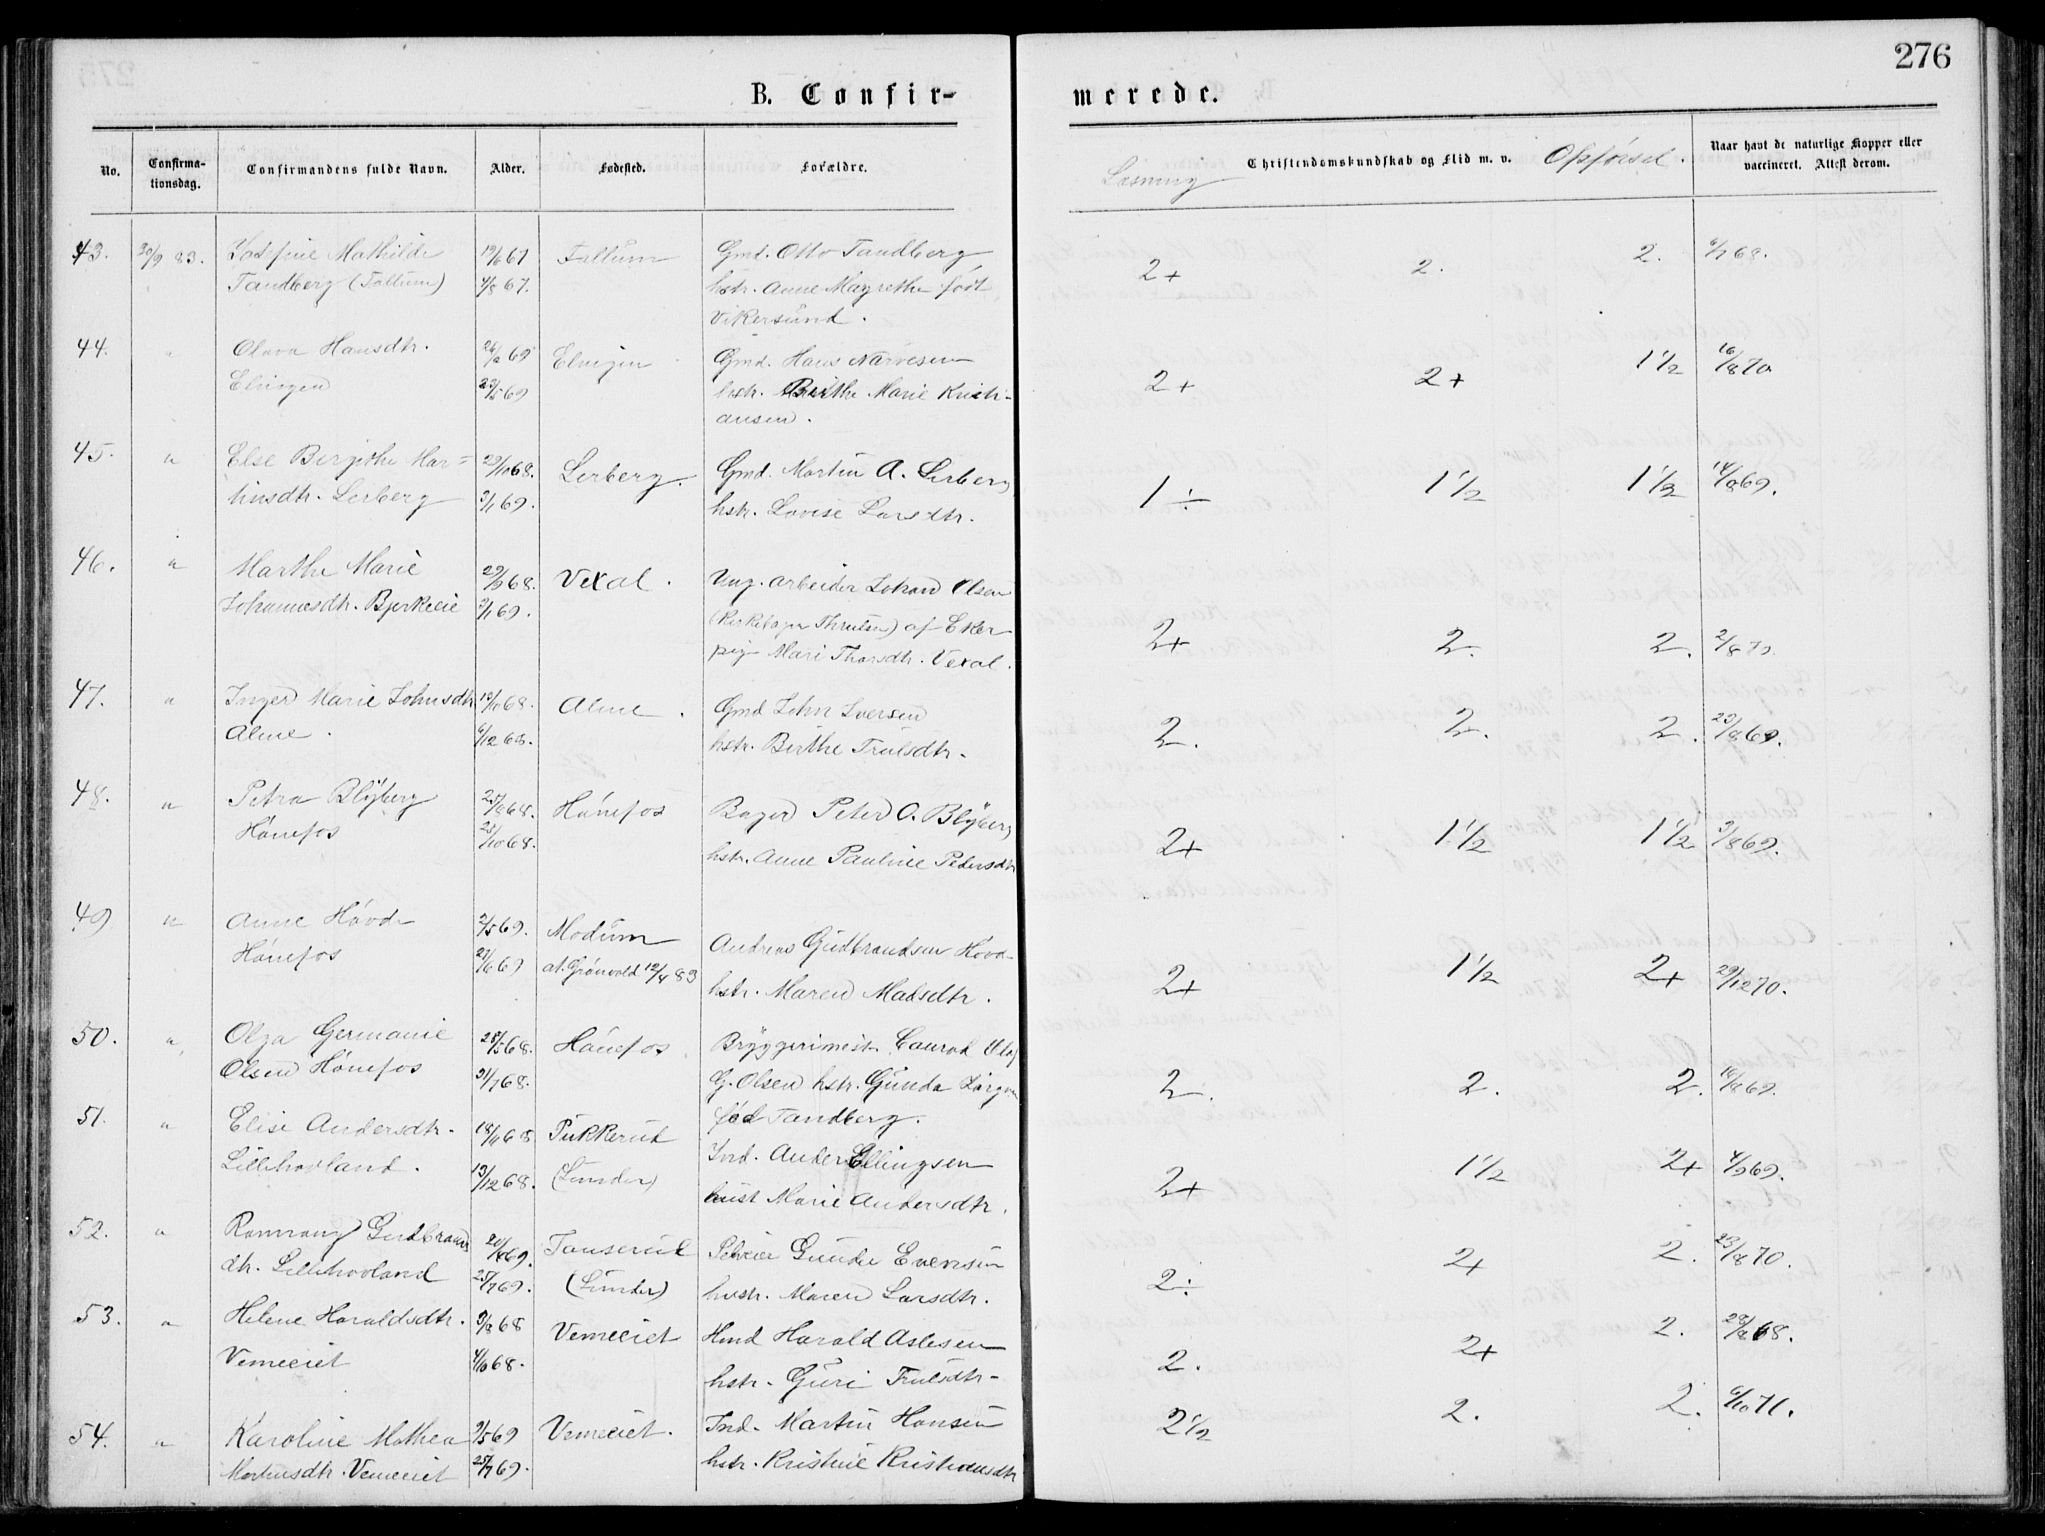 276
B. Confir-
merede.
No.
Confirma-
tionsdag.
Confirmandens fulde Navn.
Alder.
Fødested.
Forældre.
Læsning
Christendomskundskab og Flid m. v.
Opførsel.
Naar havt de naturlige Kopper eller
vaccineret. Attest derom.
43. 30/9 83. Josefine Mathilde 67 Foltum Gmd. Otto Tandberg
Tandberg (Foltum) 4/8 67. hstr. Anne Magrethe født
Vikersund.
2+ 2. 2. 68.
44. " Olava Hansdtr. 69 Elvigen Gmd. Hans Narvesen
Elvigen 69 hstr. Birthe Marie Kristi-
ansen.
2+ 2+ 1 1/2 16/8 70
45. " Else Birgithe Mar= 29/10 68. Lerberg. Gmd. Martin A. Lerberg
tinsdtr. Lerberg 3/1 69. hstr. Lovise Larsdtr.
1 ÷ 1 1/2 1 1/2 69.
46. " Marthe Marie 29/9 68. Vexal. Ung. arbeider Johan Olsen
Johannesdtr. Bjerkeeie 3/1 69. af Eker
pige Mari Thorsdtr. Vexal.
2+ 2. 2. 2/8
47. " Inger Marie Johnsdtr 68. Alme. Gmd John Iversen
Alme. 6/12 68. hstr. Birthe Trulsdtr.
2. 2. 2. 23/8 69.
48. " Petra Blyberg 68. Hønefos Bager Peter O. Blyberg
Hønefos 25/10 68. hstr. Anne Pauline Pedersdtr
2+ 1 1/2 1 1/2 3/8 69.
49 " Anne Hovde 2/5 69. Modum Andreas Gudbrandsen Hovde
Hønefos 27/6 69 at. Grønvold 12/4 83 hstr. Maren Madsdtr.
2+ 1 1/2 2+ 29/12 70.
50. " Olga Germanie 28/5 68. Hønefos Bryggerimestr. Conrad Olaf
Olsen Hønefos 31/7 68. G. Olsen hstr. Gunda
fød Tandberg.
2. 2. 2. 69.
51. " Elise Andersdtr. 18/11 68 Pukkerud Ind. Anders Ellingsen
Lillehovland. 13/12 68. (Lunder) hust Marie Andersdtr.
2+ 1 1/2 2+ 4/9 69.
52. " Rannaug Gudbrands 69. Tanserud Gunder Evensen
dtr. Lillehovland 25/7 69. (Lunder) hustr. Maren Larsdtr.
2 ÷ 2+ 2. 23/8 70.
53. " Helene Haraldsdtr. 9/8 68 Vemeeiet Hmd Harald Aslesen
Vemeeiet 4/10 68. hstr. Guri Trulsdtr.
2. 2+ 2. 28/8 68.
54. " Karoline Mathea 9/5 69 Vemeeiet. Ind. Martin Hansen
Martinsdtr. Vemeeiet 25/7 69. hstr. Kristine Kristiansdtr
2 1/2 2. 2. 6/10 71.